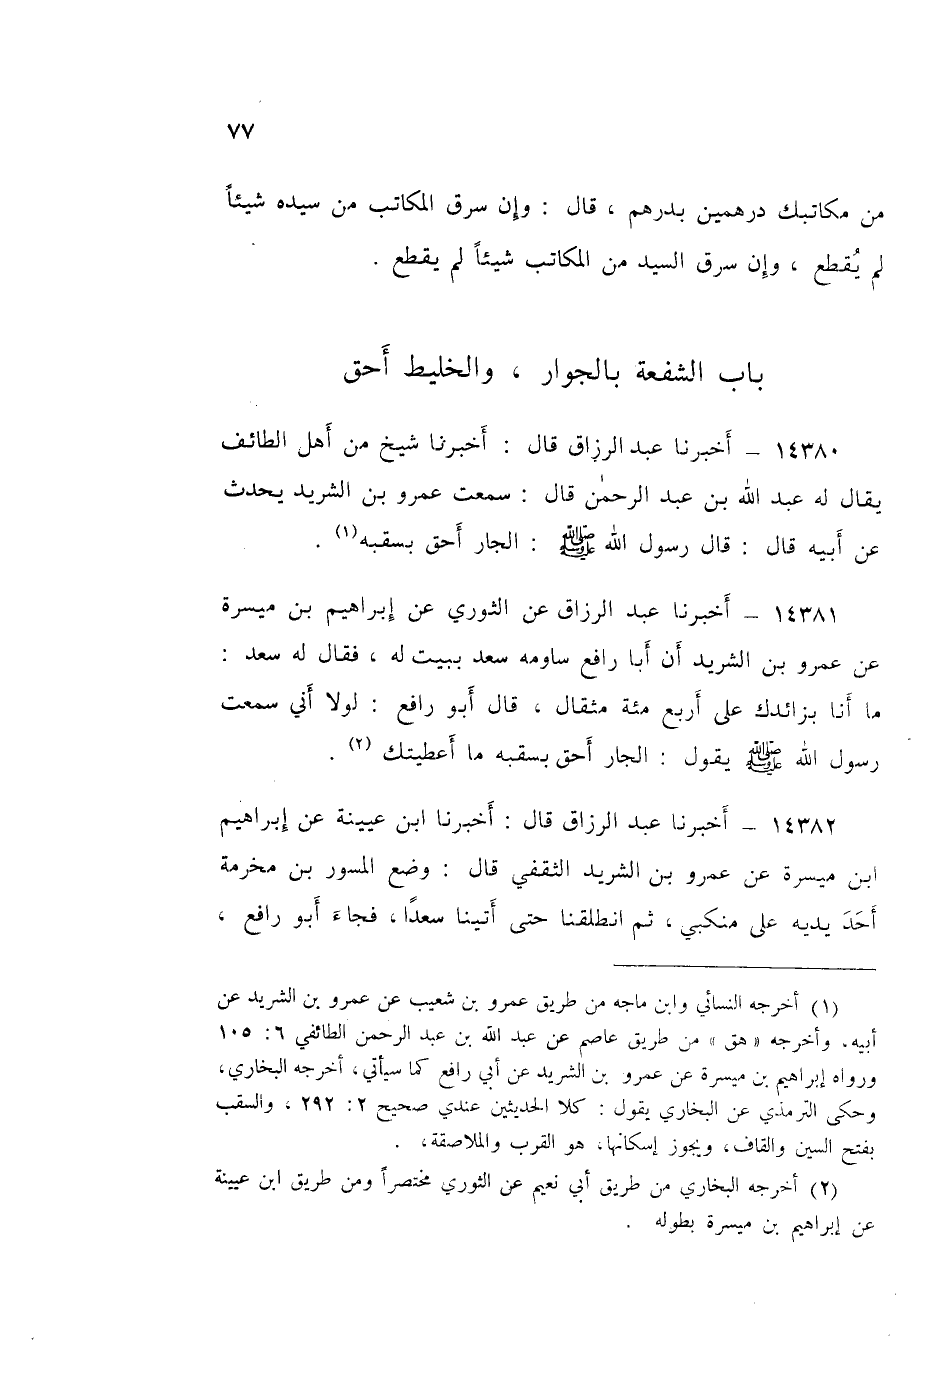 ٧٧
من مكاتبك درهمين بدرهم ، قال : وإن سرق المكاتب من سيده شيئاً
لم يُقطع ، وإن سرق السيد من المكاتب شيئاً لم يقطع .
باب الشفعة بالجوار ، والخليط أَحق
١٤٣٨٠ – أَخبرنا عبد الرزاق قال : أَخبرنا شيخ من أَهل الطائف
يقال له عبد الله بن عبد الرحمٰن قال : سمعت عمرو بن الشريد يحدث
عن أَبيه قال : قال رسول الله ﷺ : الجار أَحق بسقبه(١) .
١٤٣٨١ – أَخبرنا عبد الرزاق عن الثوري عن إِبراهيم بن ميسرة
عن عمرو بن الشريد أَن أَبا رافع ساومه سعد ببيت له ، فقال له سعد :
ما أَنا بزائدك على أَربع مئة مثقال ، قال أَبو رافع : لولا أَني سمعت
رسول الله ﷺ يقول : الجار أَحق بسقبه ما أَعطيتك (٢) .
١٤٣٨٢ – أَخبرنا عبد الرزاق قال : أَخبرنا ابن عيينة عن إِبراهيم
ابن ميسرة عن عمرو بن الشريد الثقفي قال : وضع المسور بن مخرمة
أَحَدَ يديه على منكبي ، ثم انطلقنا حتى أَتينا سعدًا ، فجاءَ أَبو رافع ،
(١) أخرجه النسائي وابن ماجه من طريق عمرو بن شعيب عن عمرو بن الشريد عن
أبيه. وأخرجه « هق » من طريق عاصم عن عبد الله بن عبد الرحمن الطائفي ٦: ١٠٥
ورواه إبراهيم بن ميسرة عن عمرو بن الشريد عن أبي رافع كما سيأتي، أخرجه البخاري،
وحكى الترمذي عن البخاري يقول : كلا الحديثين عندي صحيح ٢: ٢٩٢ ، والسقب
بفتح السين والقاف، ويجوز إسكانها، هو القرب والملاصقة، .
(٢) أخرجه البخاري من طريق أبي نعيم عن الثوري مختصراً ومن طريق ابن عيينة
عن إبراهيم بن ميسرة بطوله .